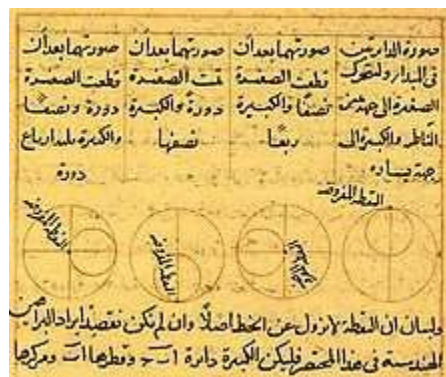 صورة الدائرتين
فى المبدأ ولتتحرك
الصغيرة الى جهة يمين
الناظر والكبيرة الى
جهة يساره
صورتهما بعد أن
قطعت الصغيرة
نصفا والكبيرة
ربعا
صورتهما بعد أن
تمت الصغيرة
دورة والكبيرة
نصفها
صورتهما بعد أن
قطعت الصغيرة
دورة ونصفا
والكبيرة ارباع
دورة
النقطة المفروضة
النقطة المفروضة
النقطة المفروضة
النقطة المفروضة
ولبيان ان النقطة لا تزول عن الخط اصلاً وان لم نكن نقصد ايراد البراهين
الهندسية فى هذا المختصر فليكن الكبيرة دائرة ا ب وقطرها ا ب ومركزها